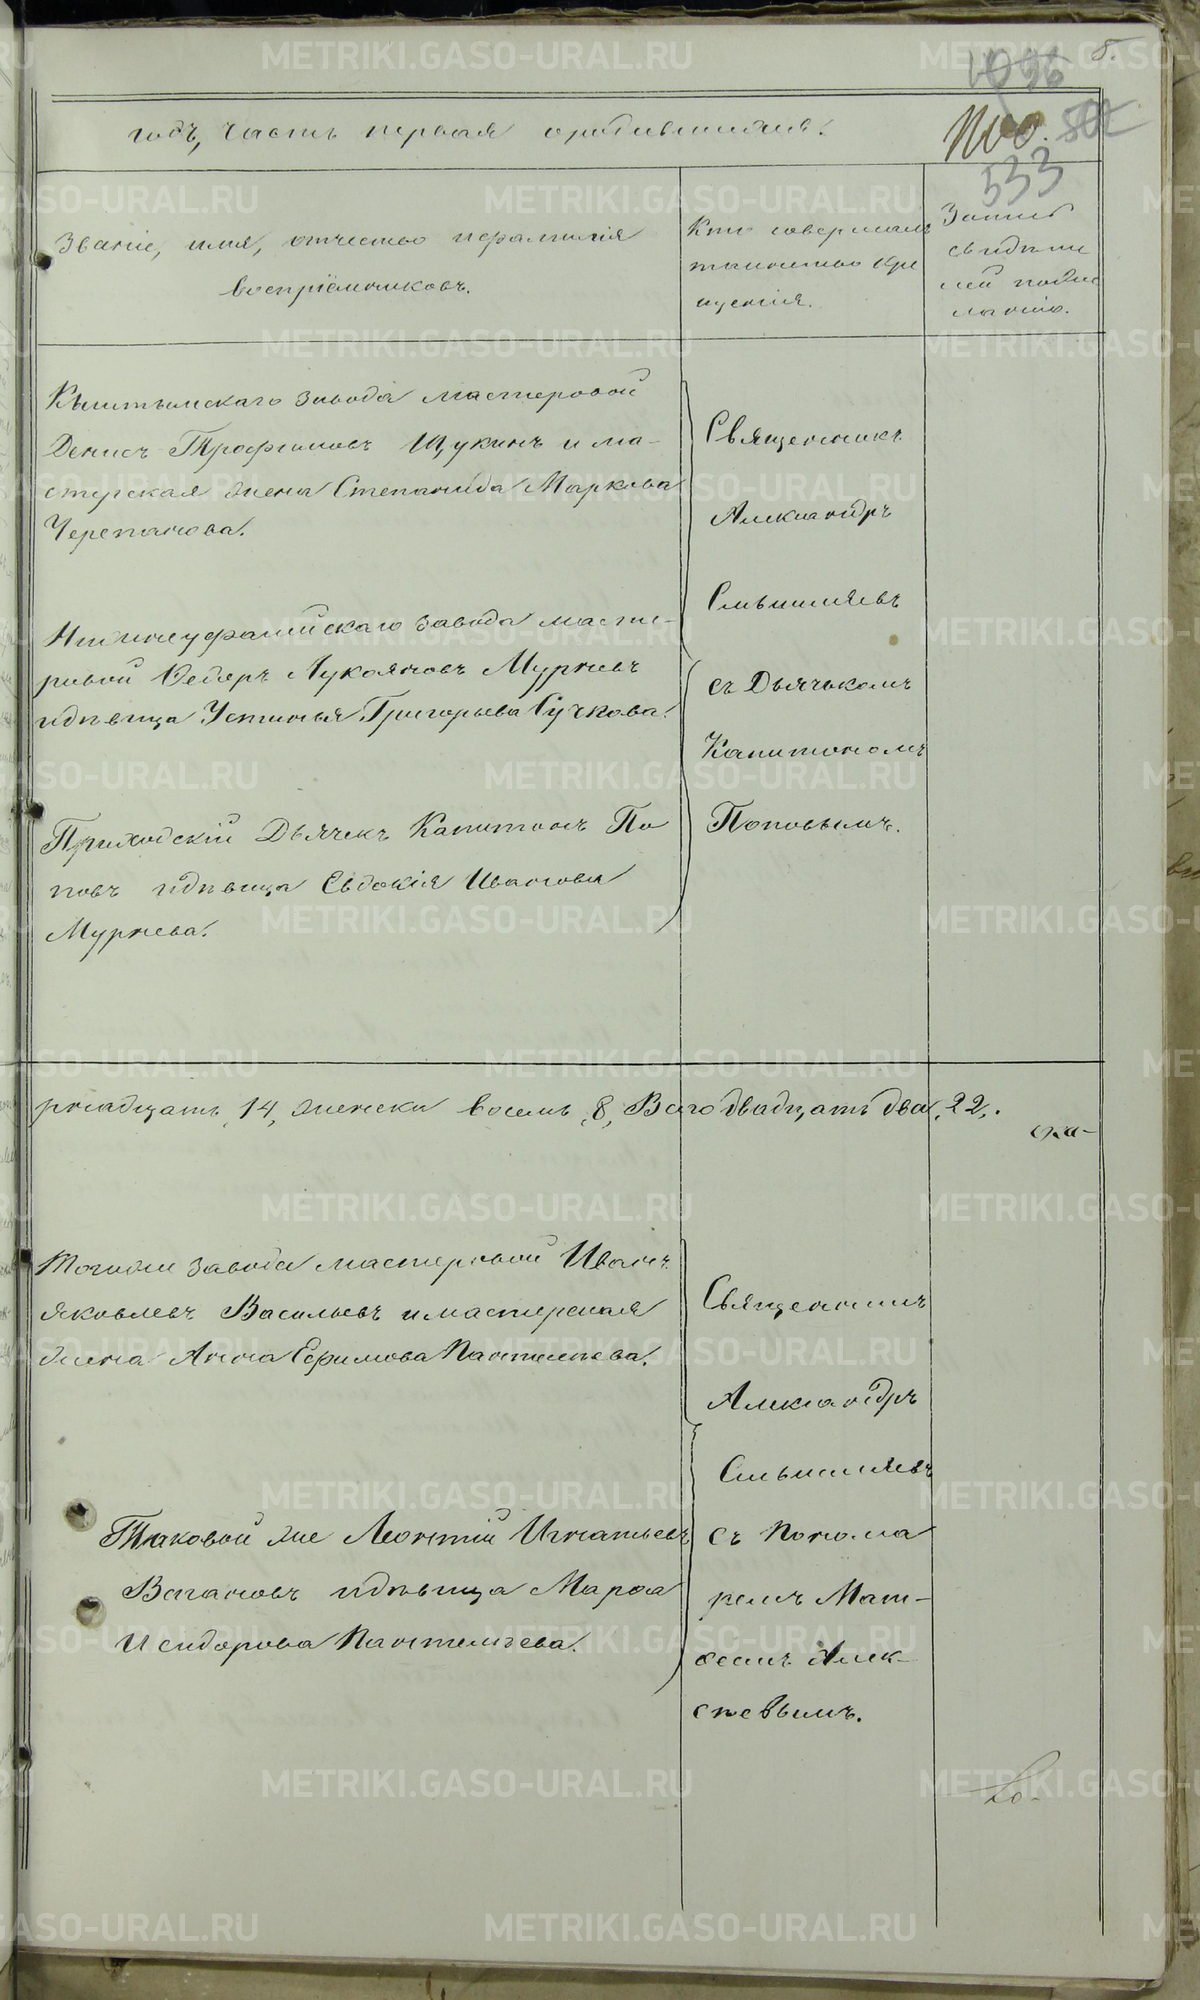 5.
1096
годъ, часть первая о родившихся.
533
Званіе, имя, отчество и фамилія
воспріемниковъ.
Кто совершалъ
таинство кре
щенія.
Запись
свидѣте
лей по же
ланію.
Кыштымскаго завода мастеровой
Денисъ Трофимовъ Щукинъ и ма-
стерская жена Степанида Маркова
Черепанова.
Нижнеуфалейскаго завода масте-
ровой Ѳедоръ Лукояновъ Мурневъ
и дѣвица Устинья Григорьева Сучкова.
Приходскій Дьячекъ Капитонъ По
повъ и дѣвица Евдокія Иванова
Мурнева.
Священникъ
Александръ
Смышляевъ
съ Дьячькомъ
Капитономъ
Поповымъ.
рнадцать 14, женска восемь 8, Всего двадцать два, 22.
ска-
Тогоже завода мастеровой Иванъ
Яковлевъ Васильевъ и мастерская
жена Анна Ефимова Пантелеева.
Таковой же Леонтій Игнатьевъ
Вагановъ и дѣвица Марѳа
Исидорова Пантелеева.
Священникъ
Александръ
Смышляевъ
съ Понома
ремъ Мат-
ѳеемъ Алек-
сѣевымъ.
METRIKI.GASO-URAL.RU